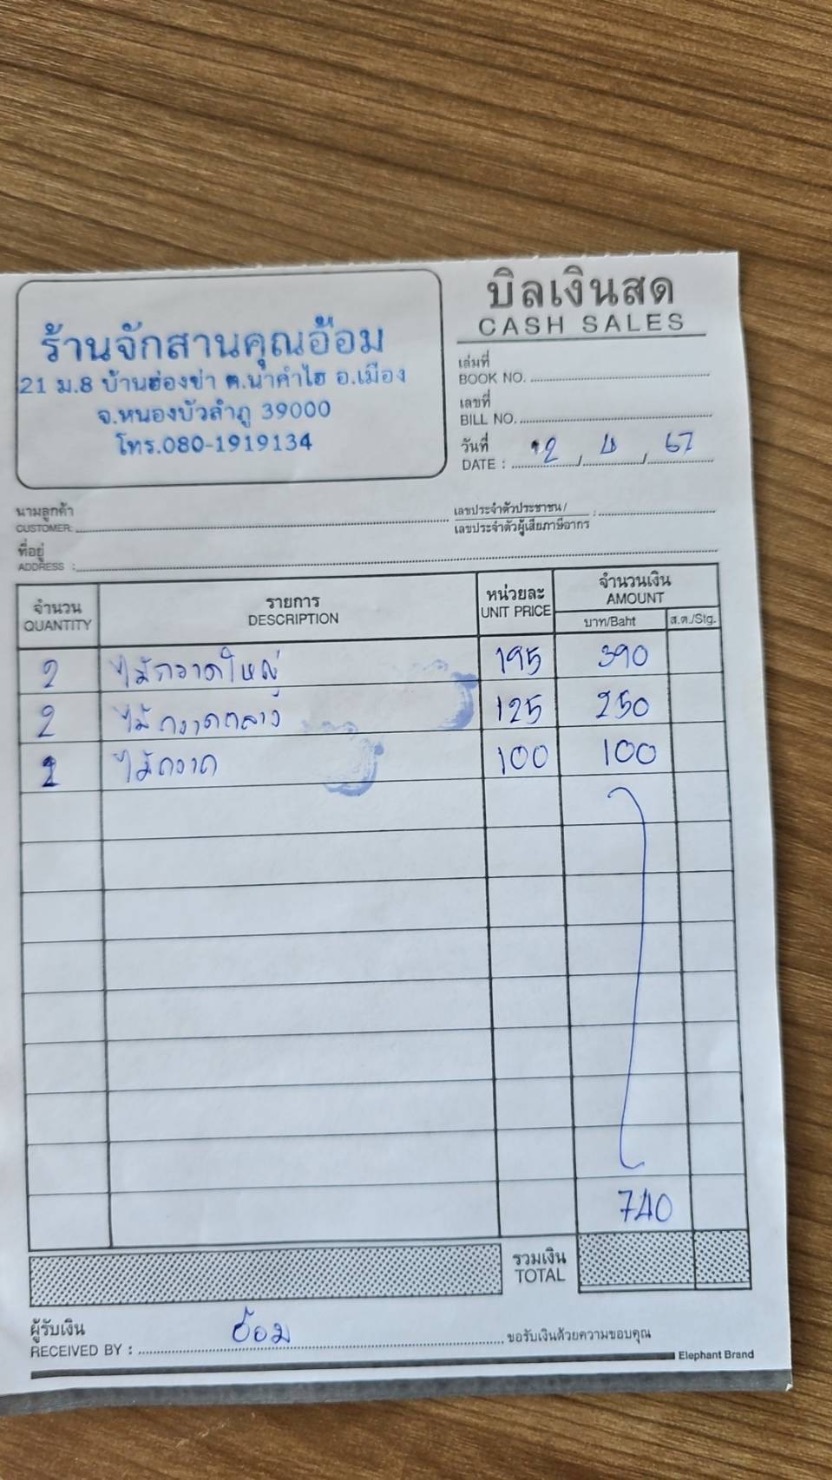 บิลเงินสด
CASH SALES
ร้านจักสานคุณอ้อม
21 ม.8 บ้านฮ่องข่า ต.นาคำไฮ อ.เมือง
จ.หนองบัวลำภู 39000
โทร.080-1919134
เล่มที่
BOOK NO.
เลขที่
BILL NO.
วันที่
DATE : 12 / 4 / 67
นามลูกค้า
CUSTOMER:
เลขประจำตัวประชาชน/
เลขประจำตัวผู้เสียภาษีอากร :
ที่อยู่
ADDRESS :
จำนวน รายการ หน่วยละ จำนวนเงิน
QUANTITY DESCRIPTION UNIT PRICE AMOUNT
บาท/Baht ส.ต./Stg.
2 ไม้กวาดใหญ่ 195 390
2 ไม้กวาดกลาง 125 250
1 ไม้กวาด 100 100
740
รวมเงิน
TOTAL
ผู้รับเงิน
RECEIVED BY : อ้อม ขอรับเงินด้วยความขอบคุณ
Elephant Brand